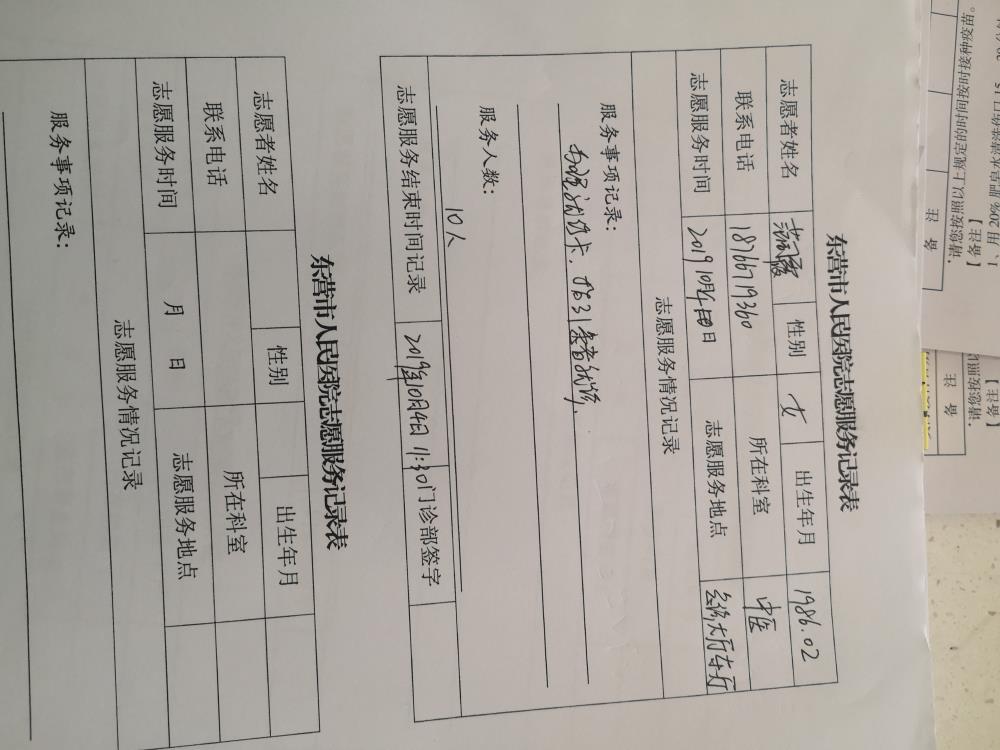 东营市人民医院志愿服务记录表
志愿者姓名 性别 女 出生年月 1986.02
联系电话 18766719360 所在科室 中医
志愿服务时间 2019 10月 日 志愿服务地点 大厅东厅
志愿服务情况记录
服务事项记录:
患者就诊
服务人数:
10人
志愿服务结束时间记录 2019年10月4日 11:30 门诊部签字
东营市人民医院志愿服务记录表
志愿者姓名 性别 出生年月
联系电话 所在科室
志愿服务时间 月 日 志愿服务地点
志愿服务情况记录
服务事项记录:
备 注
请您按照以上规定的时间按时接种疫苗。
【备注】
备 注
请您按照
【备注】